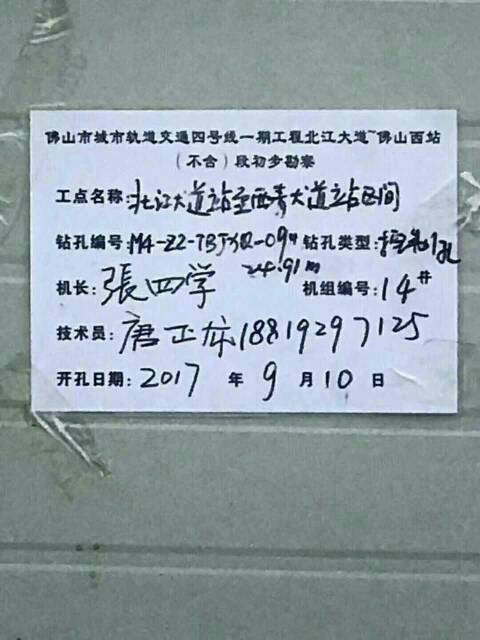 佛山市城市轨道交通四号线一期工程北江大道~佛山西站
（不含）段初步勘察
工点名称：北江大道站至西青大道站区间
钻孔编号：M4-Z2-TBJXQ-09# 钻孔类型：控制孔
24.91m
机长：張四学 机组编号：14#
技术员：唐正 18819297125
开孔日期：2017 年 9 月 10 日